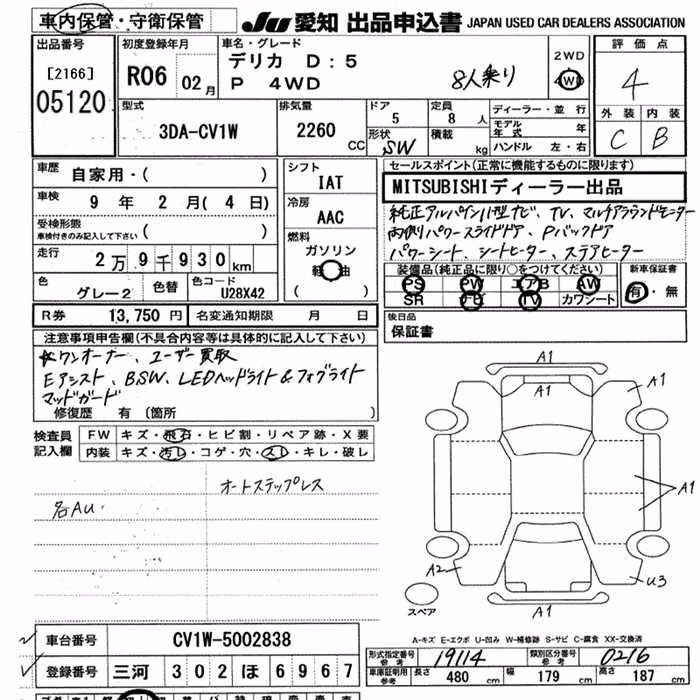 車内保管・守衛保管
JU 愛知 出品申込書 JAPAN USED CAR DEALERS ASSOCIATION
出品番号
[2166]
05120
初度登録年月
R06 02月
車名・グレード
デリカ D:5
P 4WD
8人乗り
2WD
4WD
評価点
4
外装 内装
C B
型式
3DA-CV1W
排気量
2260 CC
ドア
5
形状
SW
定員
8人
積載
kg
ディーラー・並行
モデル年式 年
ハンドル 左・右
車歴
自家用・( )
車検
9年 2月(4日)
受検形態
車検付きのみ記入して下さい ( )
走行
2万9千930km
色
グレー2
色替
色コード
U28X42
シフト
IAT
冷房
AAC
燃料
ガソリン
軽油
( )
セールスポイント(正常に機能するものに限ります)
MITSUBISHIディーラー出品
純正アルパイン11型ナビ、TV、マルチアラウンドモニター
両側パワースライドドア、Pバックドア
パワーシート、シートヒーター、ステアヒーター
装備品(純正品に限り○をつけてください)
PS PW エアB AW
SR ナビ TV カワシート
新車保証書
有・無
R券 13,750円 名変通知期限 月 日
後日品
保証書
注意事項申告欄(不具合内容等は具体的に記入して下さい)
ワンオーナー、ユーザー買取
Eアシスト、BSW、LEDヘッドライト&フォグライト
マッドガード
修復歴 有(箇所
検査員
記入欄
FW キズ・飛石・ヒビ割・リペア跡・X要
内装 キズ・汚レ・コゲ・穴・スレ・キレ・破レ
オートステップレス
各AU
A1
A1
A1
A1
A2
U3
A1
スペア
A-キズ E-エクボ U-凹み W-補修跡 S-サビ C-腐食 XX-交換済
車台番号 CV1W-5002838
登録番号 三河 302 ほ 6967
形式指定番号 参考 19114 類別区分番号 参考 0216
車庫証明用 参考 長さ 480 cm 幅 179 cm 高さ 187 cm